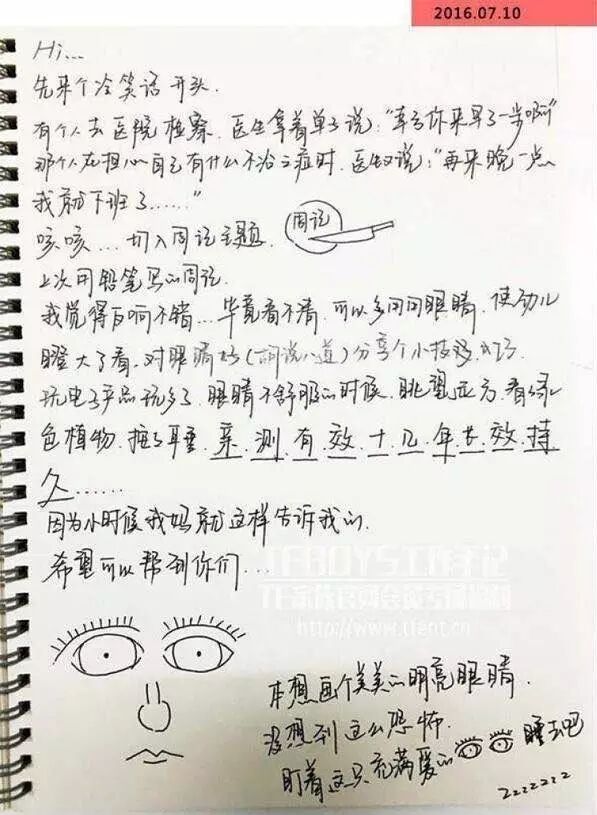 2016.07.10
Hi...
先来个冷笑话开头.
有个人去医院检察.医生拿着单子说:"幸亏你来早了一步啊"
那个人在担心自己有什么不治之症时.医生又说:"再来晚一点
我就下班了......"
咳咳...切入周记主题.
周记
上次用铅笔写的周记.
我觉得反响不错...毕竟看不清.可以多用用眼睛.使劲儿
瞪大了看.对眼睛好(胡说八道)分享个小技巧
玩电子产品玩多了.眼睛不舒服的时候.眺望远方.看绿
色植物.揉耳垂.亲.测.有.效.十.几.年.长.效.持
久......
因为小时候我妈就这样告诉我的.
希望可以帮到你们...
TFBOYS工作手记
http://www.tfent.cn
本想画个美美的明亮眼睛.
没想到这么恐怖.
盯着这只充满爱的 睡去吧
zzzzzzz